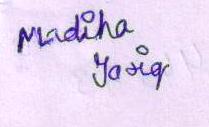 Madiha
Yasiq